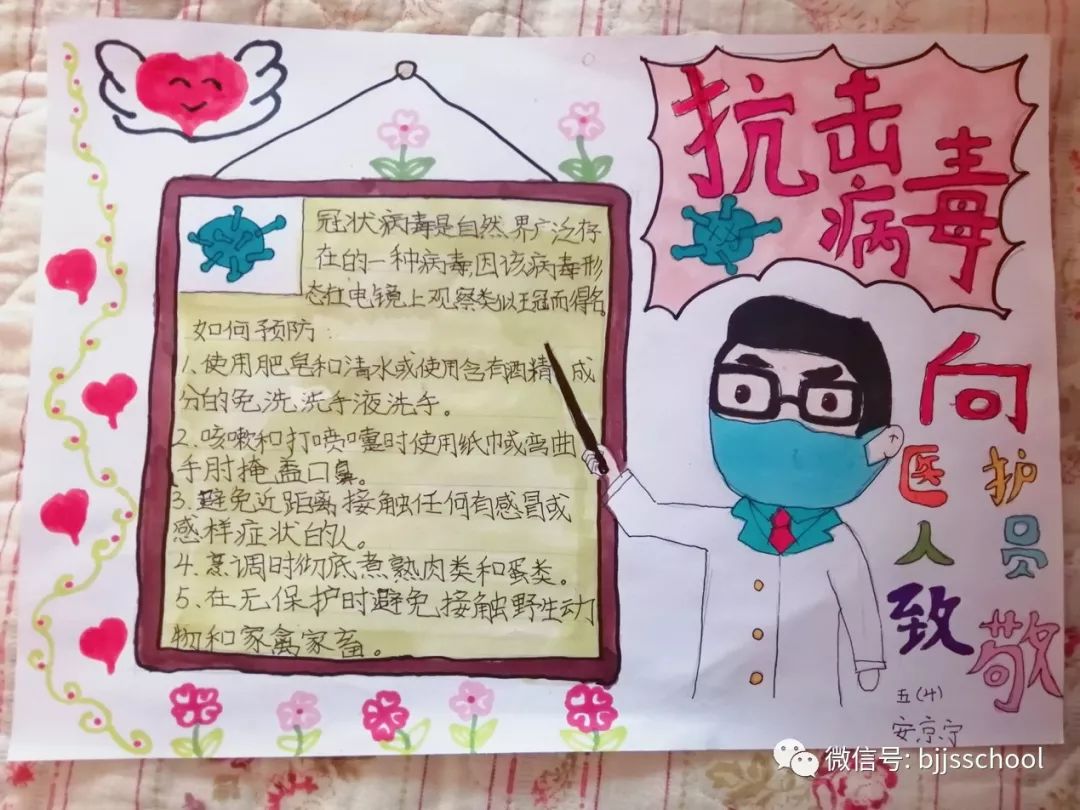 抗击
病毒
冠状病毒是自然界广泛存
在的一种病毒,因该病毒形
态在电镜上观察类似王冠而得名。
如何预防:
1.使用肥皂和清水或使用含有酒精成
分的免洗洗手液洗手。
2.咳嗽和打喷嚏时使用纸巾或弯曲
手肘掩盖口鼻。
3.避免近距离接触任何有感冒或
感样症状的人。
4.烹调时彻底煮熟肉类和蛋类。
5.在无保护时避免接触野生动
物和家禽家畜。
向
医护
人员
致敬
五(4)
安京宁
微信号: bjjsschool